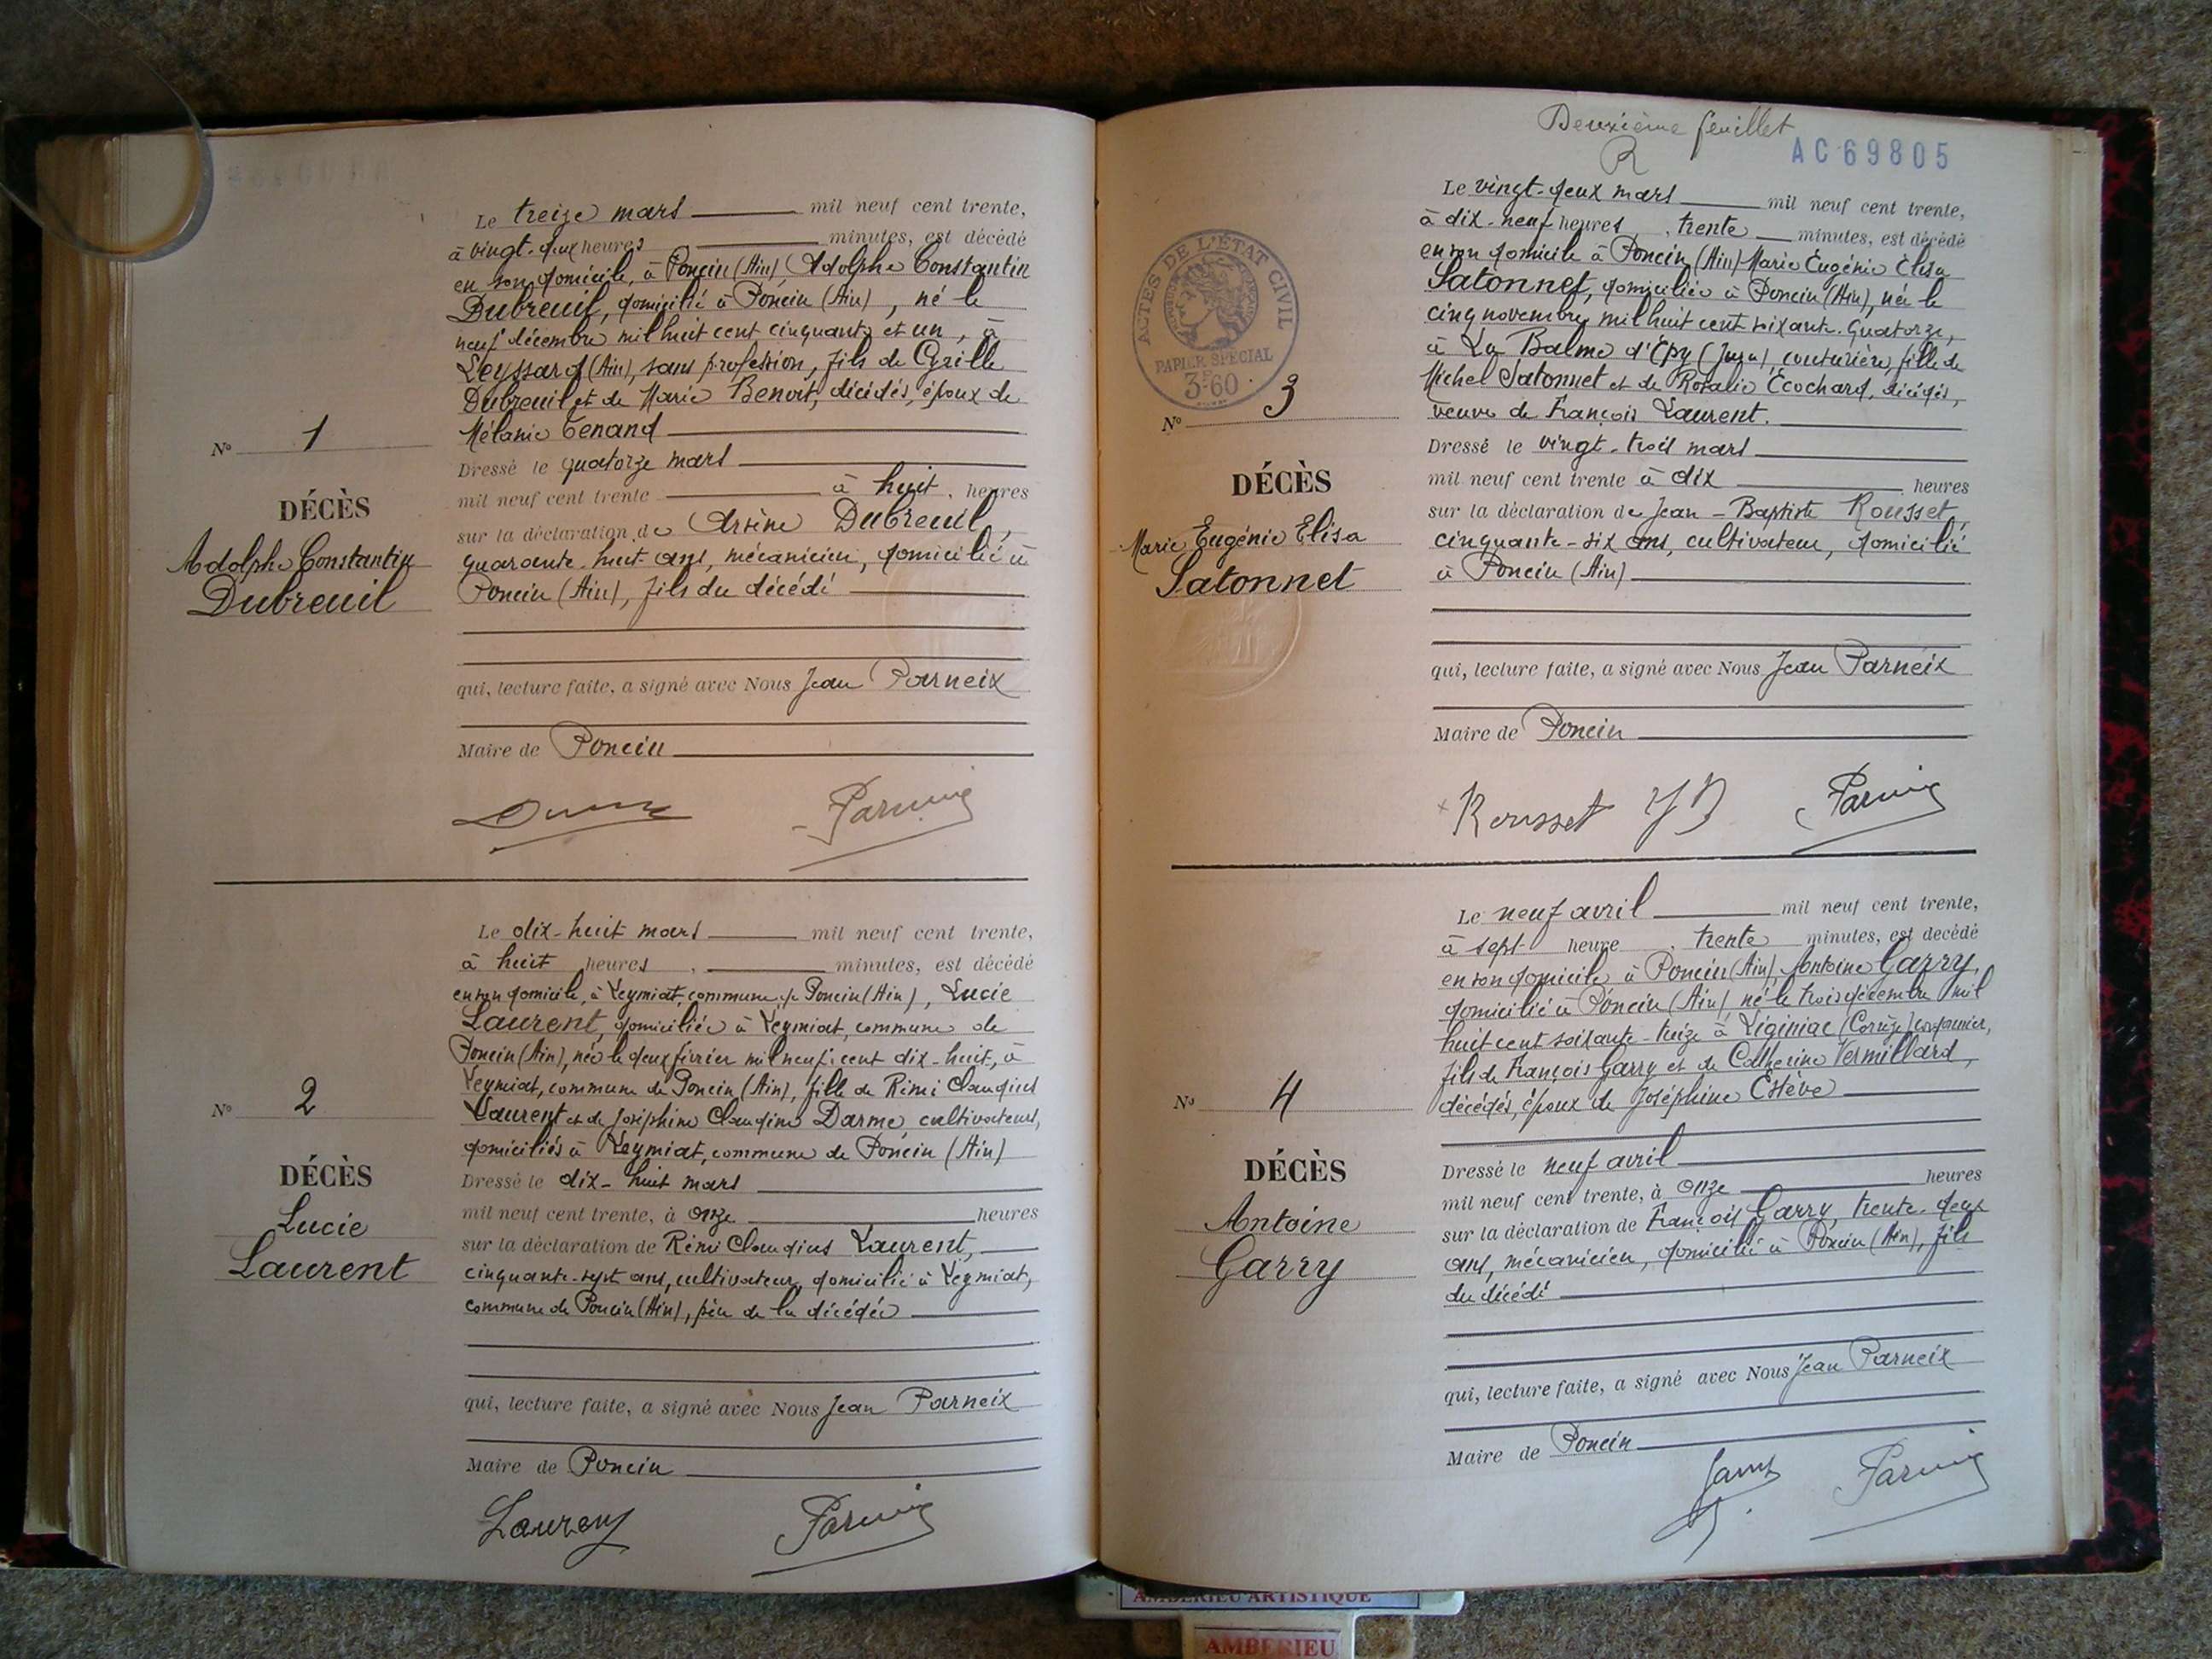 Le treize mars mil neuf cent trente,
à vingt-deux heures minutes, est décédé
en son domicile, à Poncin (Ain), Adolphe Constantin
Dubreuil, domicilié à Poncin (Ain), né le
neuf décembre mil huit cent cinquante et un, à
Leyssard (Ain), sans profession, fils de Cyrille
Dubreuil et de Marie Benoit, décédés, époux de
Mélanie Tenand
Nº 1
Dressé le quatorze mars
mil neuf cent trente à huit heures
DÉCÈS
sur la déclaration de Arsène Dubreuil,
Adolphe Constantin
quarante-huit ans, mécanicien, domicilié à
Dubreuil
Poncin (Ain), fils du décédé
qui, lecture faite, a signé avec Nous Jean Parneix
Maire de Poncin
Parneix
Le dix-huit mars mil neuf cent trente,
à huit heures, minutes, est décédé
en son domicile, à Leymiat, commune de Poncin (Ain), Lucie
Laurent, domiciliée à Leymiat, commune de
Poncin (Ain), née le deux février mil neuf cent dix-huit, à
Leymiat, commune de Poncin (Ain), fille de Rémi Claudius
Laurent et de Joséphine Claudine Darme, cultivateurs,
Nº 2
domiciliés à Leymiat, commune de Poncin (Ain)
Dressé le dix-huit mars
DÉCÈS
mil neuf cent trente, à onze heures
Lucie
sur la déclaration de Rémi Claudius Laurent,
Laurent
cinquante-sept ans, cultivateur, domicilié à Leymiat,
commune de Poncin (Ain), père de la décédée
qui, lecture faite, a signé avec Nous Jean Parneix
Maire de Poncin
Laurent Parneix
Deuxième feuillet
R
AC69805
Le vingt-deux mars mil neuf cent trente,
à dix-neuf heures, trente minutes, est décédé
en son domicile à Poncin (Ain) Marie Eugénie Elisa
Satonnet, domiciliée à Poncin (Ain), née le
cinq novembre mil huit cent soixante-quatorze,
à La Balme d'Epy (Jura), couturière, fille de
Michel Satonnet et de Rosalie Ecochard, décédés,
veuve de François Laurent.
ACTES DE L'ÉTAT CIVIL
PAPIER SPÉCIAL
3F60
Nº 3
Dressé le vingt-trois mars
mil neuf cent trente à dix heures
DÉCÈS
sur la déclaration de Jean-Baptiste Rousset,
Marie Eugénie Elisa
cinquante-six ans, cultivateur, domicilié
Satonnet
à Poncin (Ain)
qui, lecture faite, a signé avec Nous Jean Parneix
Maire de Poncin
Rousset JB Parneix
Le neuf avril mil neuf cent trente,
à sept heure, trente minutes, est décédé
en son domicile à Poncin (Ain) Antoine Garry,
domicilié à Poncin (Ain) né le trois décembre mil
huit cent soixante-treize à Liginiac (Corrèze)
fils de François Garry et de Catherine Vermillard,
décédés, époux de Joséphine Estève
Nº 4
Dressé le neuf avril
DÉCÈS
mil neuf cent trente, à onze heures
Antoine
sur la déclaration de François Garry, trente-deux
Garry
ans, mécanicien, domicilié à Poncin (Ain), fils
du décédé
qui, lecture faite, a signé avec Nous Jean Parneix
Maire de Poncin
Parneix
AMBERIEU ARTISTIQUE
AMBERIEU